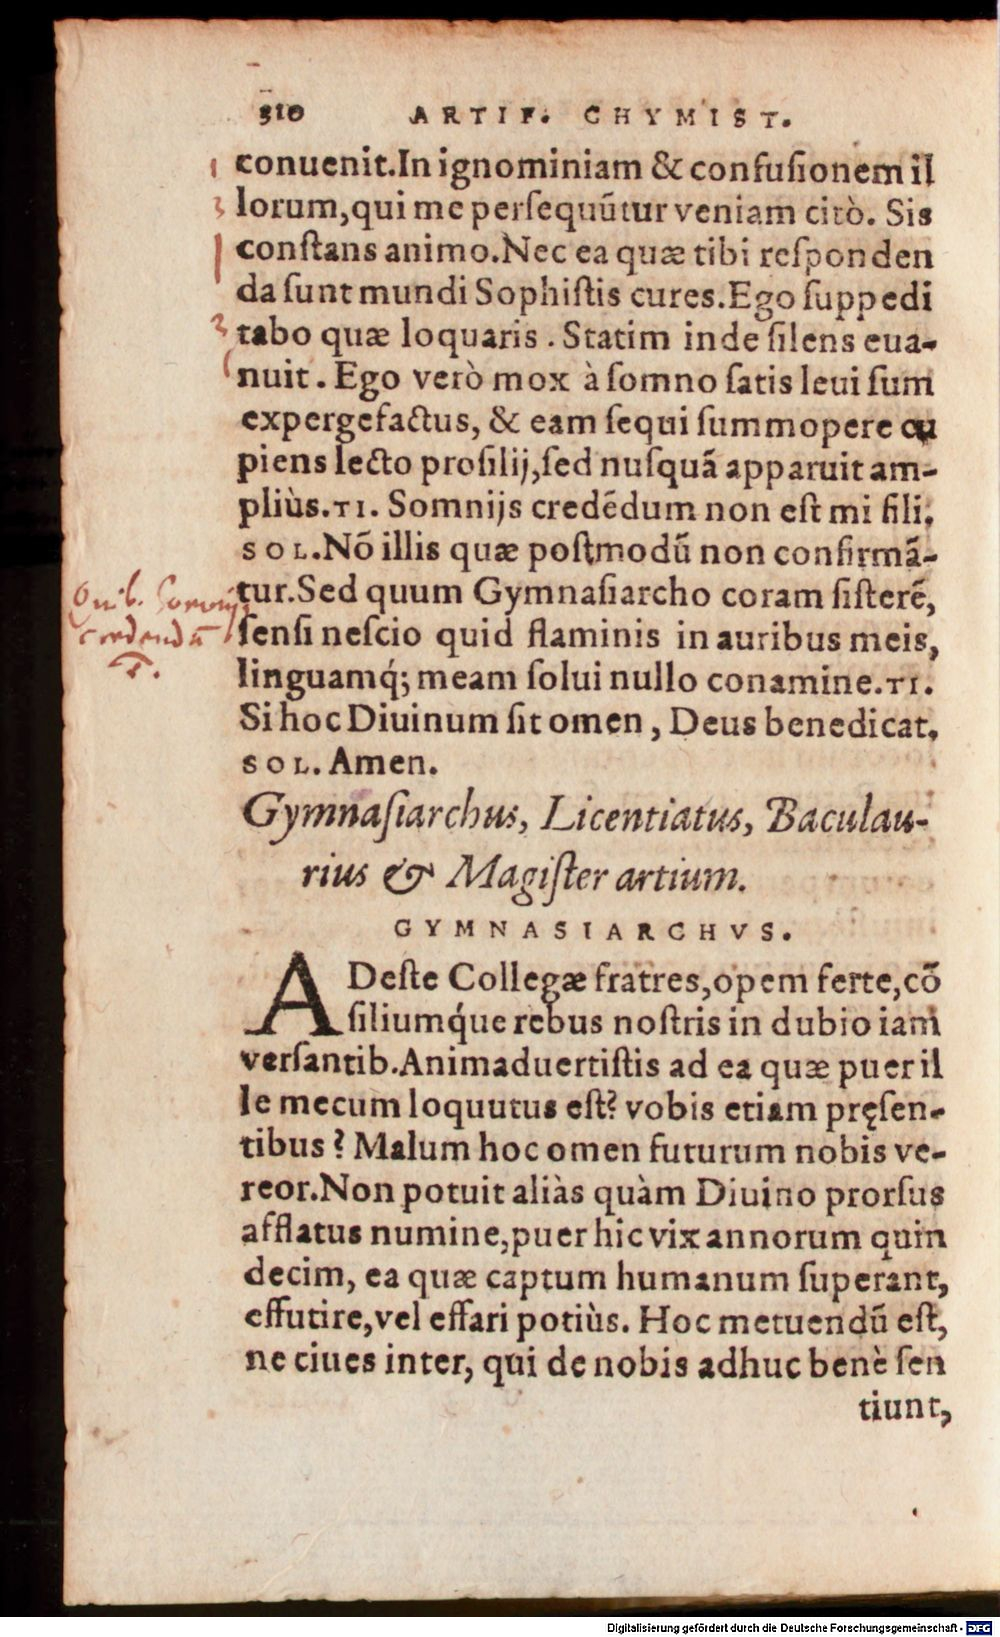 310 ARTIF. CHYMIST.
conuenit.In ignominiam & confuſionem il
lorum,qui me perſequũtur veniam citò. Sis
conſtans animo.Nec ea quæ tibi reſponden
da ſunt mundi Sophiſtis cures.Ego ſuppedi
tabo quæ loquaris . Statim inde ſilens eua-
nuit. Ego verò mox à ſomno ſatis leui ſum
expergefactus, & eam ſequi ſummopere cu
piens lecto proſilij,ſed nuſquã apparuit am-
pliùs.TI. Somnijs credẽdum non eſt mi fili.
SOL.Nõ illis quæ poſtmodũ non confirmã-
tur.Sed quum Gymnaſiarcho coram ſiſterẽ,
ſenſi neſcio quid flaminis in auribus meis,
linguamq́; meam ſolui nullo conamine.TI.
Si hoc Diuinum ſit omen, Deus benedicat.
SOL. Amen.
Quib. Somnijs
credendũ
Gymnaſiarchus, Licentiatus, Baculau-
rius & Magiſter artium.
GYMNASIARCHVS.
ADeſte Collegæ fratres,opem ferte,cõ
ſiliumq́ue rebus noſtris in dubio iam
verſantib.Animaduertiſtis ad ea quæ puer il
le mecum loquutus eſt? vobis etiam pręſen-
tibus? Malum hoc omen futurum nobis ve-
reor.Non potuit aliàs quàm Diuino prorſus
afflatus numine,puer hic vix annorum quin
decim, ea quæ captum humanum ſuperant,
effutire,vel effari potiùs. Hoc metuendũ eſt,
ne ciues inter, qui de nobis adhuc benè ſen
tiunt,
Digitalisierung gefördert durch die Deutsche Forschungsgemeinschaft - DFG